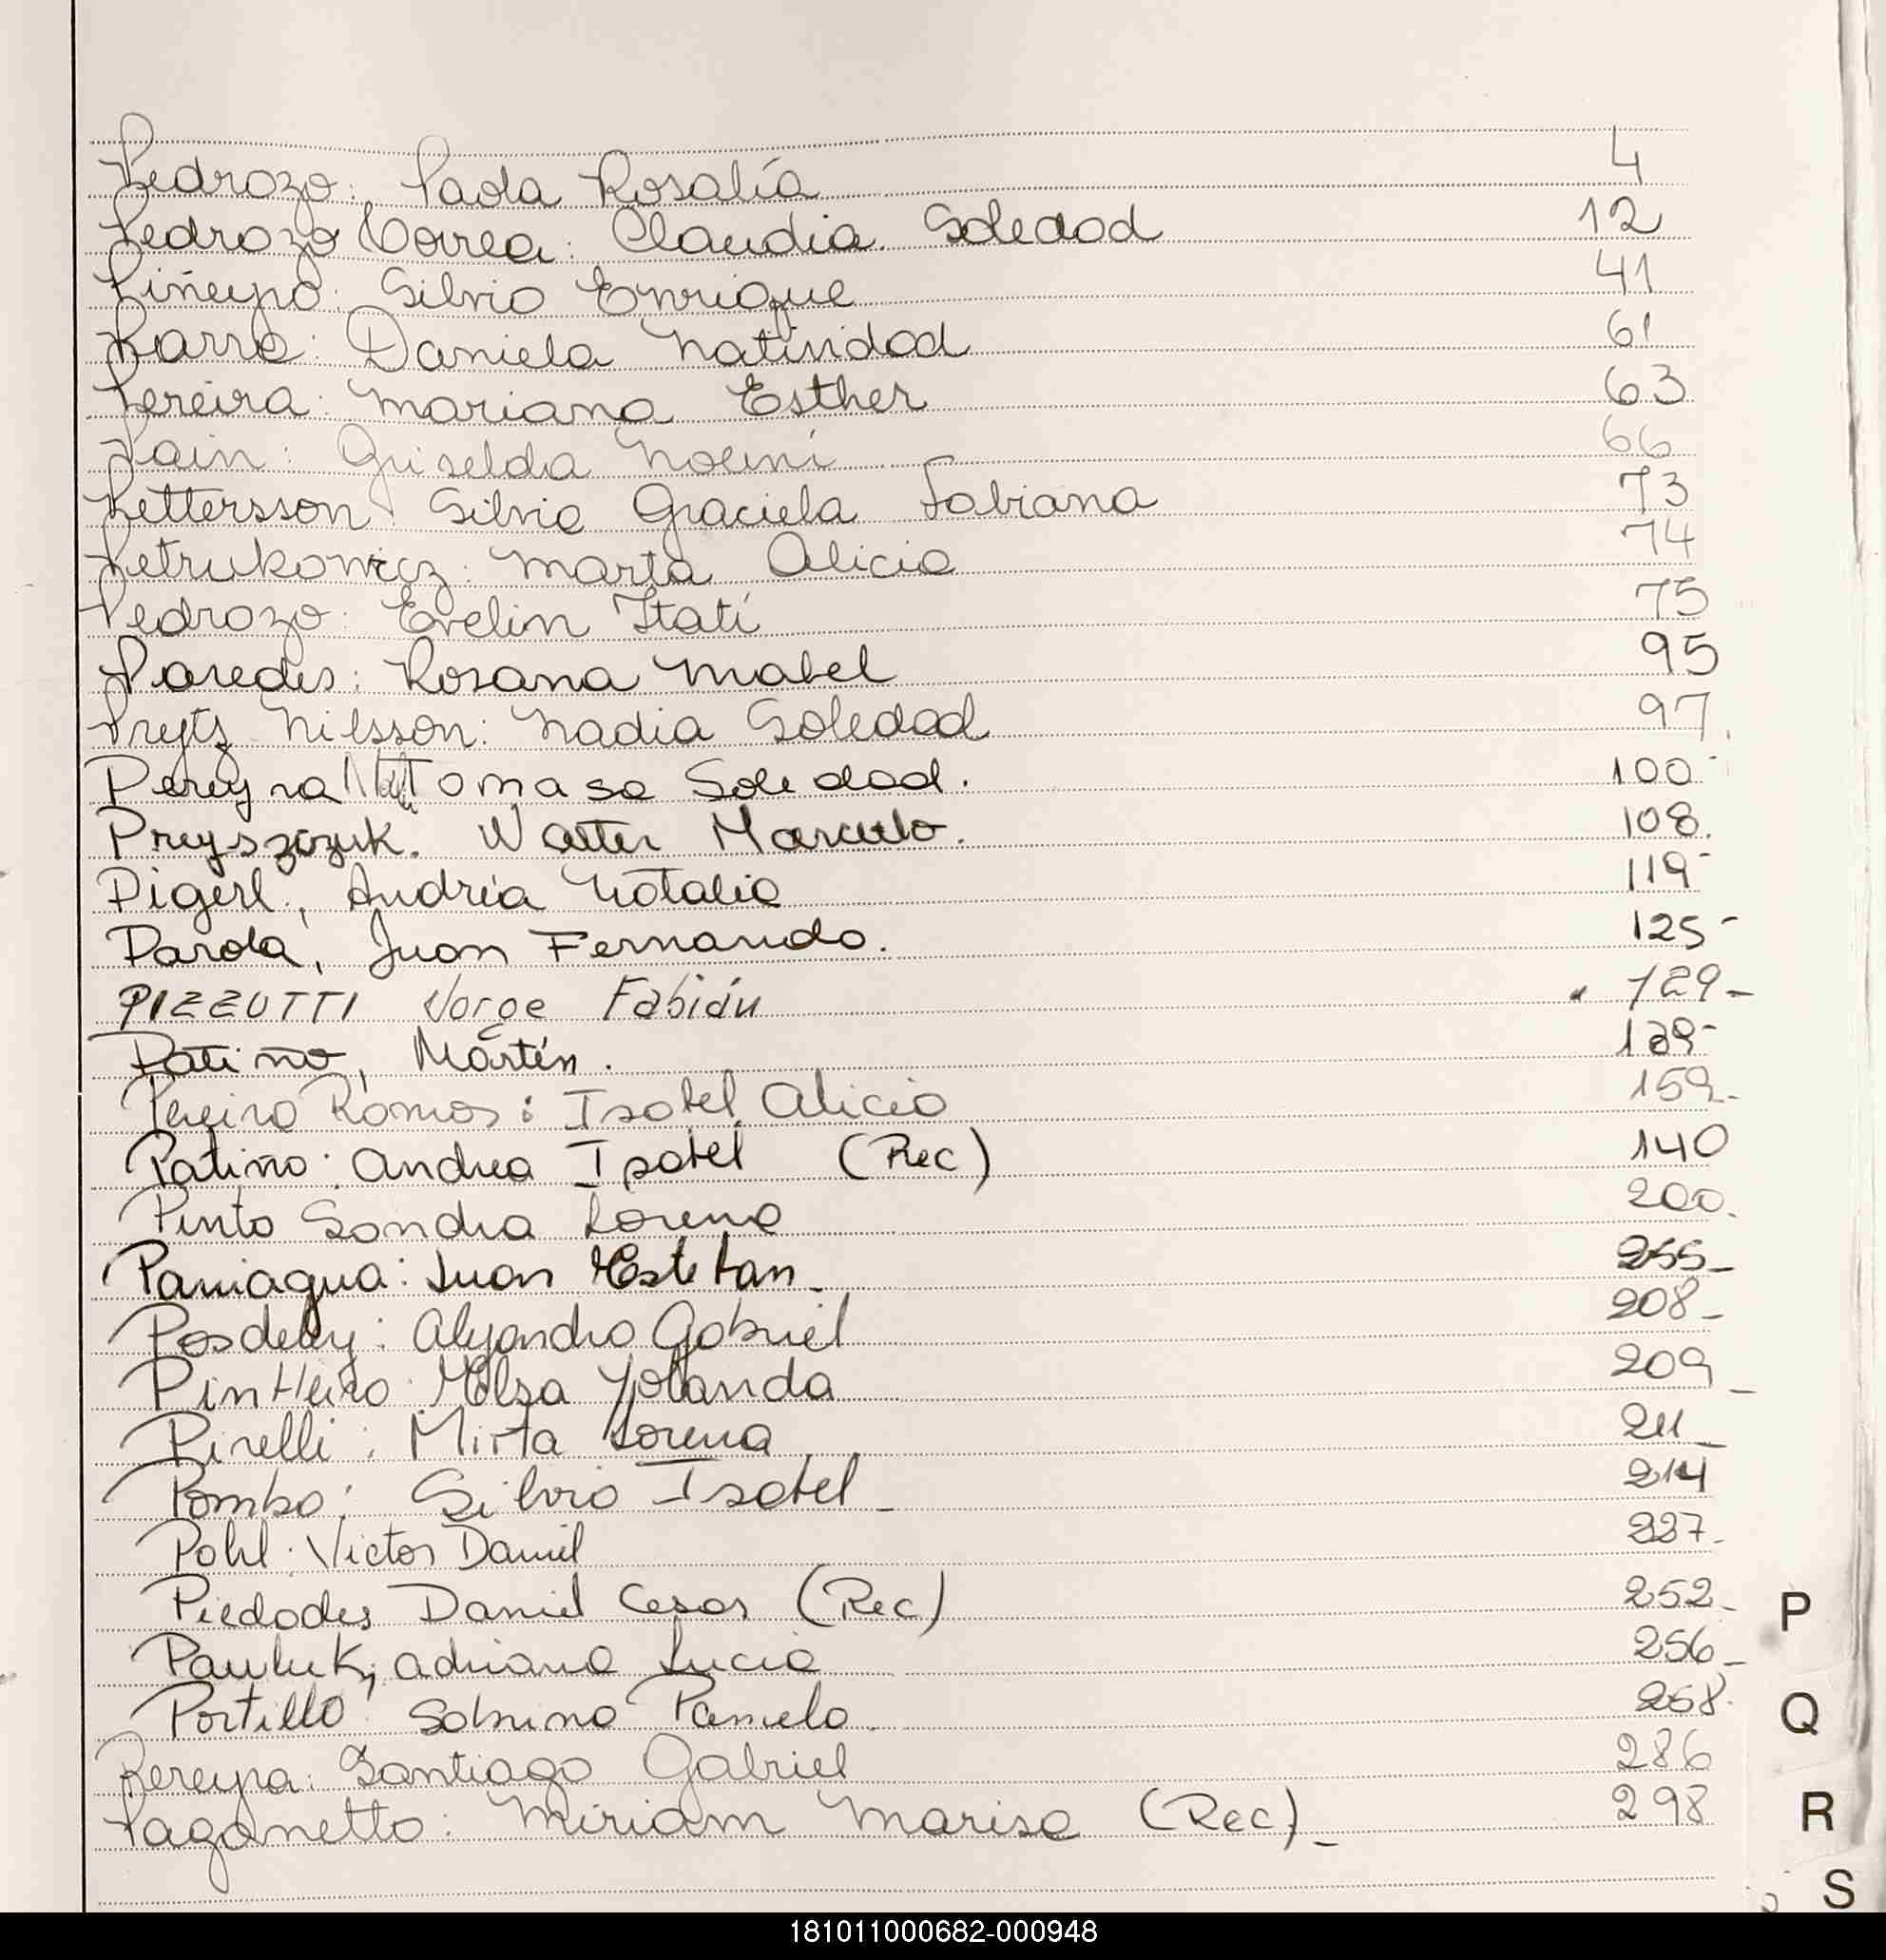 Pedrozo: Paola Rosalía 4
Pedrozo Correa: Claudia Soledad 12
Piñeyro: Silvio Enrique 41
Parra: Daniela Natividad 61
Pereira: Mariana Esther 63
Pain: Griselda Noemí 66
Pettersson: Silvia Graciela Fabiana 73
Petrukowicz: Marta Alicia 74
Pedrozo: Evelin Itatí 75
Paredes: Rosana Mabel 95
Prytz Nilsson: Nadia Soledad 97
Pereyra Tomasa Soledad. 100-
Walter Marcelo. 108.
Pigerl, Andréa Natalia 119-
Parola, Juan Fernando. 125-
PIZZUTTI Jorge Fabián 129-
Patiño, Martín.
Pereira Ramos: Isabel Alicia 159-
Patiño: Andrea Isabel (Rec) 140
Pinto Sandra Lorena 200.
Paniagua: Juan Esteban_
Posdeley: Alejandro Gabriel 208_
Pintteiro: Elsa Yolanda 209_
Pirelli: Mirta Lorena 211_
Pombo: Silvia Isabel_ 214
Pohl: Victor Daniel
Piedades Daniel Cesar (Rec) 252_
Pawluk, Adriana Lucia 256_
Portillo: Sabrina Pamela. 258.
Pereyra: Santiago Gabriel 286
Paganetto: Miriam Marisa (Rec)_ 298
P
Q
R
S
181011000682-000948